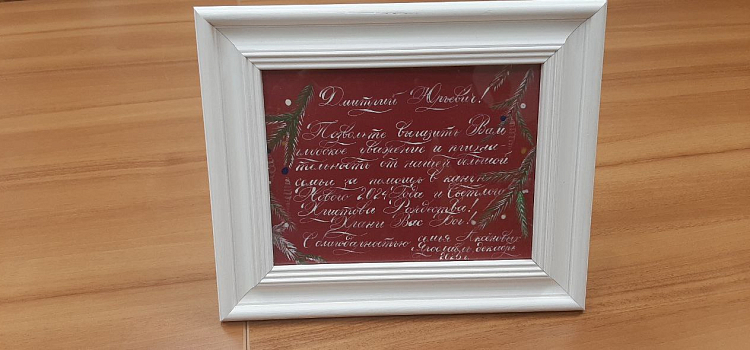 Дмитрий Юрьевич!
Позвольте выразить Вам
глубокое уважение и призна-
тельность от нашей большой
семьи за помощь в канун
Нового 2024 Года и Светлого
Христова Рождества!
Храни Вас Бог!
С благодарностью семья
Ярославль, декабрь